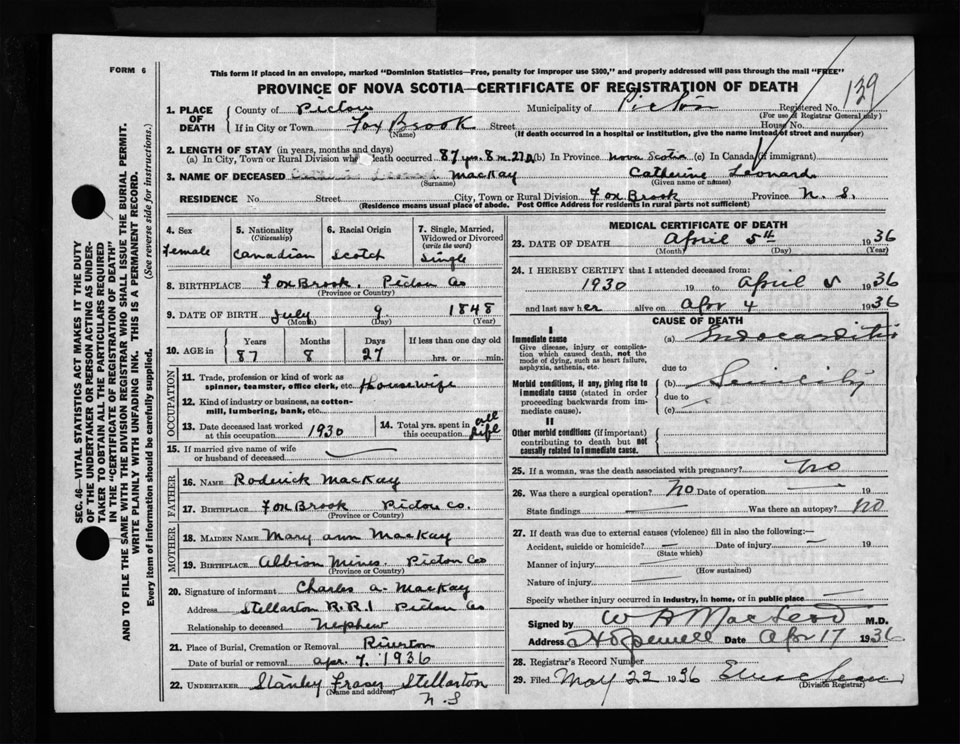 FORM 6
This form if placed in an envelope, marked "Dominion Statistics—Free, penalty for improper use $300," and properly addressed will pass through the mail "FREE"
PROVINCE OF NOVA SCOTIA—CERTIFICATE OF REGISTRATION OF DEATH
139
1. PLACE OF DEATH
County of Pictou Municipality of Pictou Registered No.
(For use of Registrar General only)
If in City or Town Fox Brook Street House No.
(Name) (If death occurred in a hospital or institution, give the name instead of street and number)
2. LENGTH OF STAY (in years, months and days)
(a) In City, Town or Rural Division where death occurred 87 yrs. 8 m. 27 D (b) In Province Nova Scotia (c) In Canada (if immigrant)
3. NAME OF DECEASED MacKay Catherine Leonard
(Surname) (Given name or names)
RESIDENCE No. Street City, Town or Rural Division Fox Brook Province N. S.
(Residence means usual place of abode. Post Office Address for residents in rural parts not sufficient)
4. Sex
Female
5. Nationality
(Citizenship)
Canadian
6. Racial Origin
Scotch
7. Single, Married, Widowed or Divorced
(write the word)
Single
8. BIRTHPLACE Fox Brook, Pictou Co
(Province or Country)
9. DATE OF BIRTH July 9 1848
(Month) (Day) (Year)
10. AGE in Years Months Days If less than one day old
87 8 27 hrs. or min.
OCCUPATION
11. Trade, profession or kind of work as spinner, teamster, office clerk, etc. housewife
12. Kind of industry or business, as cotton-mill, lumbering, bank, etc.
13. Date deceased last worked at this occupation 1930
14. Total yrs. spent in this occupation all life
15. If married give name of wife or husband of deceased
FATHER
16. NAME Roderick MacKay
17. BIRTHPLACE Fox Brook Pictou Co.
(Province or Country)
MOTHER
18. MAIDEN NAME Mary ann MacKay
19. BIRTHPLACE Albion Mines. Pictou Co
(Province or Country)
20. Signature of informant Charles a. MacKay
Address Stellarton R.R.1 Pictou Co
Relationship to deceased Nephew
21. Place of Burial, Cremation or Removal Riverton
Date of burial or removal apr. 7, 1936
22. UNDERTAKER Stanley Fraser Stellarton
(Name and address) N. S
MEDICAL CERTIFICATE OF DEATH
23. DATE OF DEATH April 5th 1936
(Month) (Day) (Year)
24. I HEREBY CERTIFY that I attended deceased from:
1930 19 to April 5 1936
and last saw her alive on Apr 4 1936
CAUSE OF DEATH
I
Immediate cause
Give disease, injury or complication which caused death, not the mode of dying, such as heart failure, asphyxia, asthenia, etc.
(a) Endocarditis
due to
Morbid conditions, if any, giving rise to immediate cause (stated in order proceeding backwards from immediate cause).
(b) Senility
due to
(c)
II
Other morbid conditions (if important) contributing to death but not causally related to immediate cause.
25. If a woman, was the death associated with pregnancy? no
26. Was there a surgical operation? No Date of operation 19
State findings Was there an autopsy? no
27. If death was due to external causes (violence) fill in also the following:—
Accident, suicide or homicide? Date of injury 19
(State which)
Manner of injury
(How sustained)
Nature of injury
Specify whether injury occurred in industry, in home, or in public place
Signed by W A MacLeod M.D.
Address Hopewell Date Apr 17 1936
28. Registrar's Record Number
29. Filed May 22 1936
(Division Registrar)
SEC. 46—VITAL STATISTICS ACT MAKES IT THE DUTY
OF THE UNDERTAKER OR PERSON ACTING AS UNDER-
TAKER TO OBTAIN ALL THE PARTICULARS REQUIRED
IN THE "CERTIFICATE OF REGISTRATION OF DEATH"
AND TO FILE THE SAME WITH THE DIVISION REGISTRAR WHO SHALL ISSUE THE BURIAL PERMIT.
WRITE PLAINLY WITH UNFADING INK. THIS IS A PERMANENT RECORD.
Every item of information should be carefully supplied. (See reverse side for instructions.)